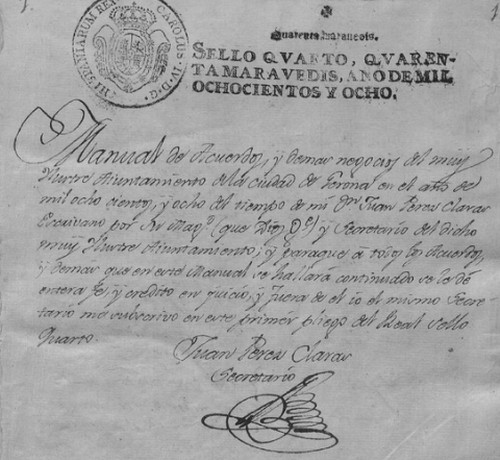 CAROLUS IV D.G. HISPANIARUM REX
Quarenta maravedis.
SELLO QVARTO, QVAREN-
TA MARAVEDIS, AÑO DE MIL
OCHOCIENTOS Y OCHO.
Manual de Acuerdos, y demas negocios del muy
Ylustre Ajuntamiento de la ciudad de Gerona en el año de
mil ocho cientos, y ocho del tiempo de mi Dn. Juan Perez Claras
Escrivano por Su Magd. (que Dios Ge.) y Secretario del dicho
muy Ylustre Ajuntamiento; y paraque à todos los Acuerdos,
y demas que en este Manual se hallará continuado se le dé
entera fe, y credito en juicio, y fuera de el io el mismo Secre-
tario me subscrivo en este primer pliego del Real sello
Quarto.
Juan Perez Claras
Secretario